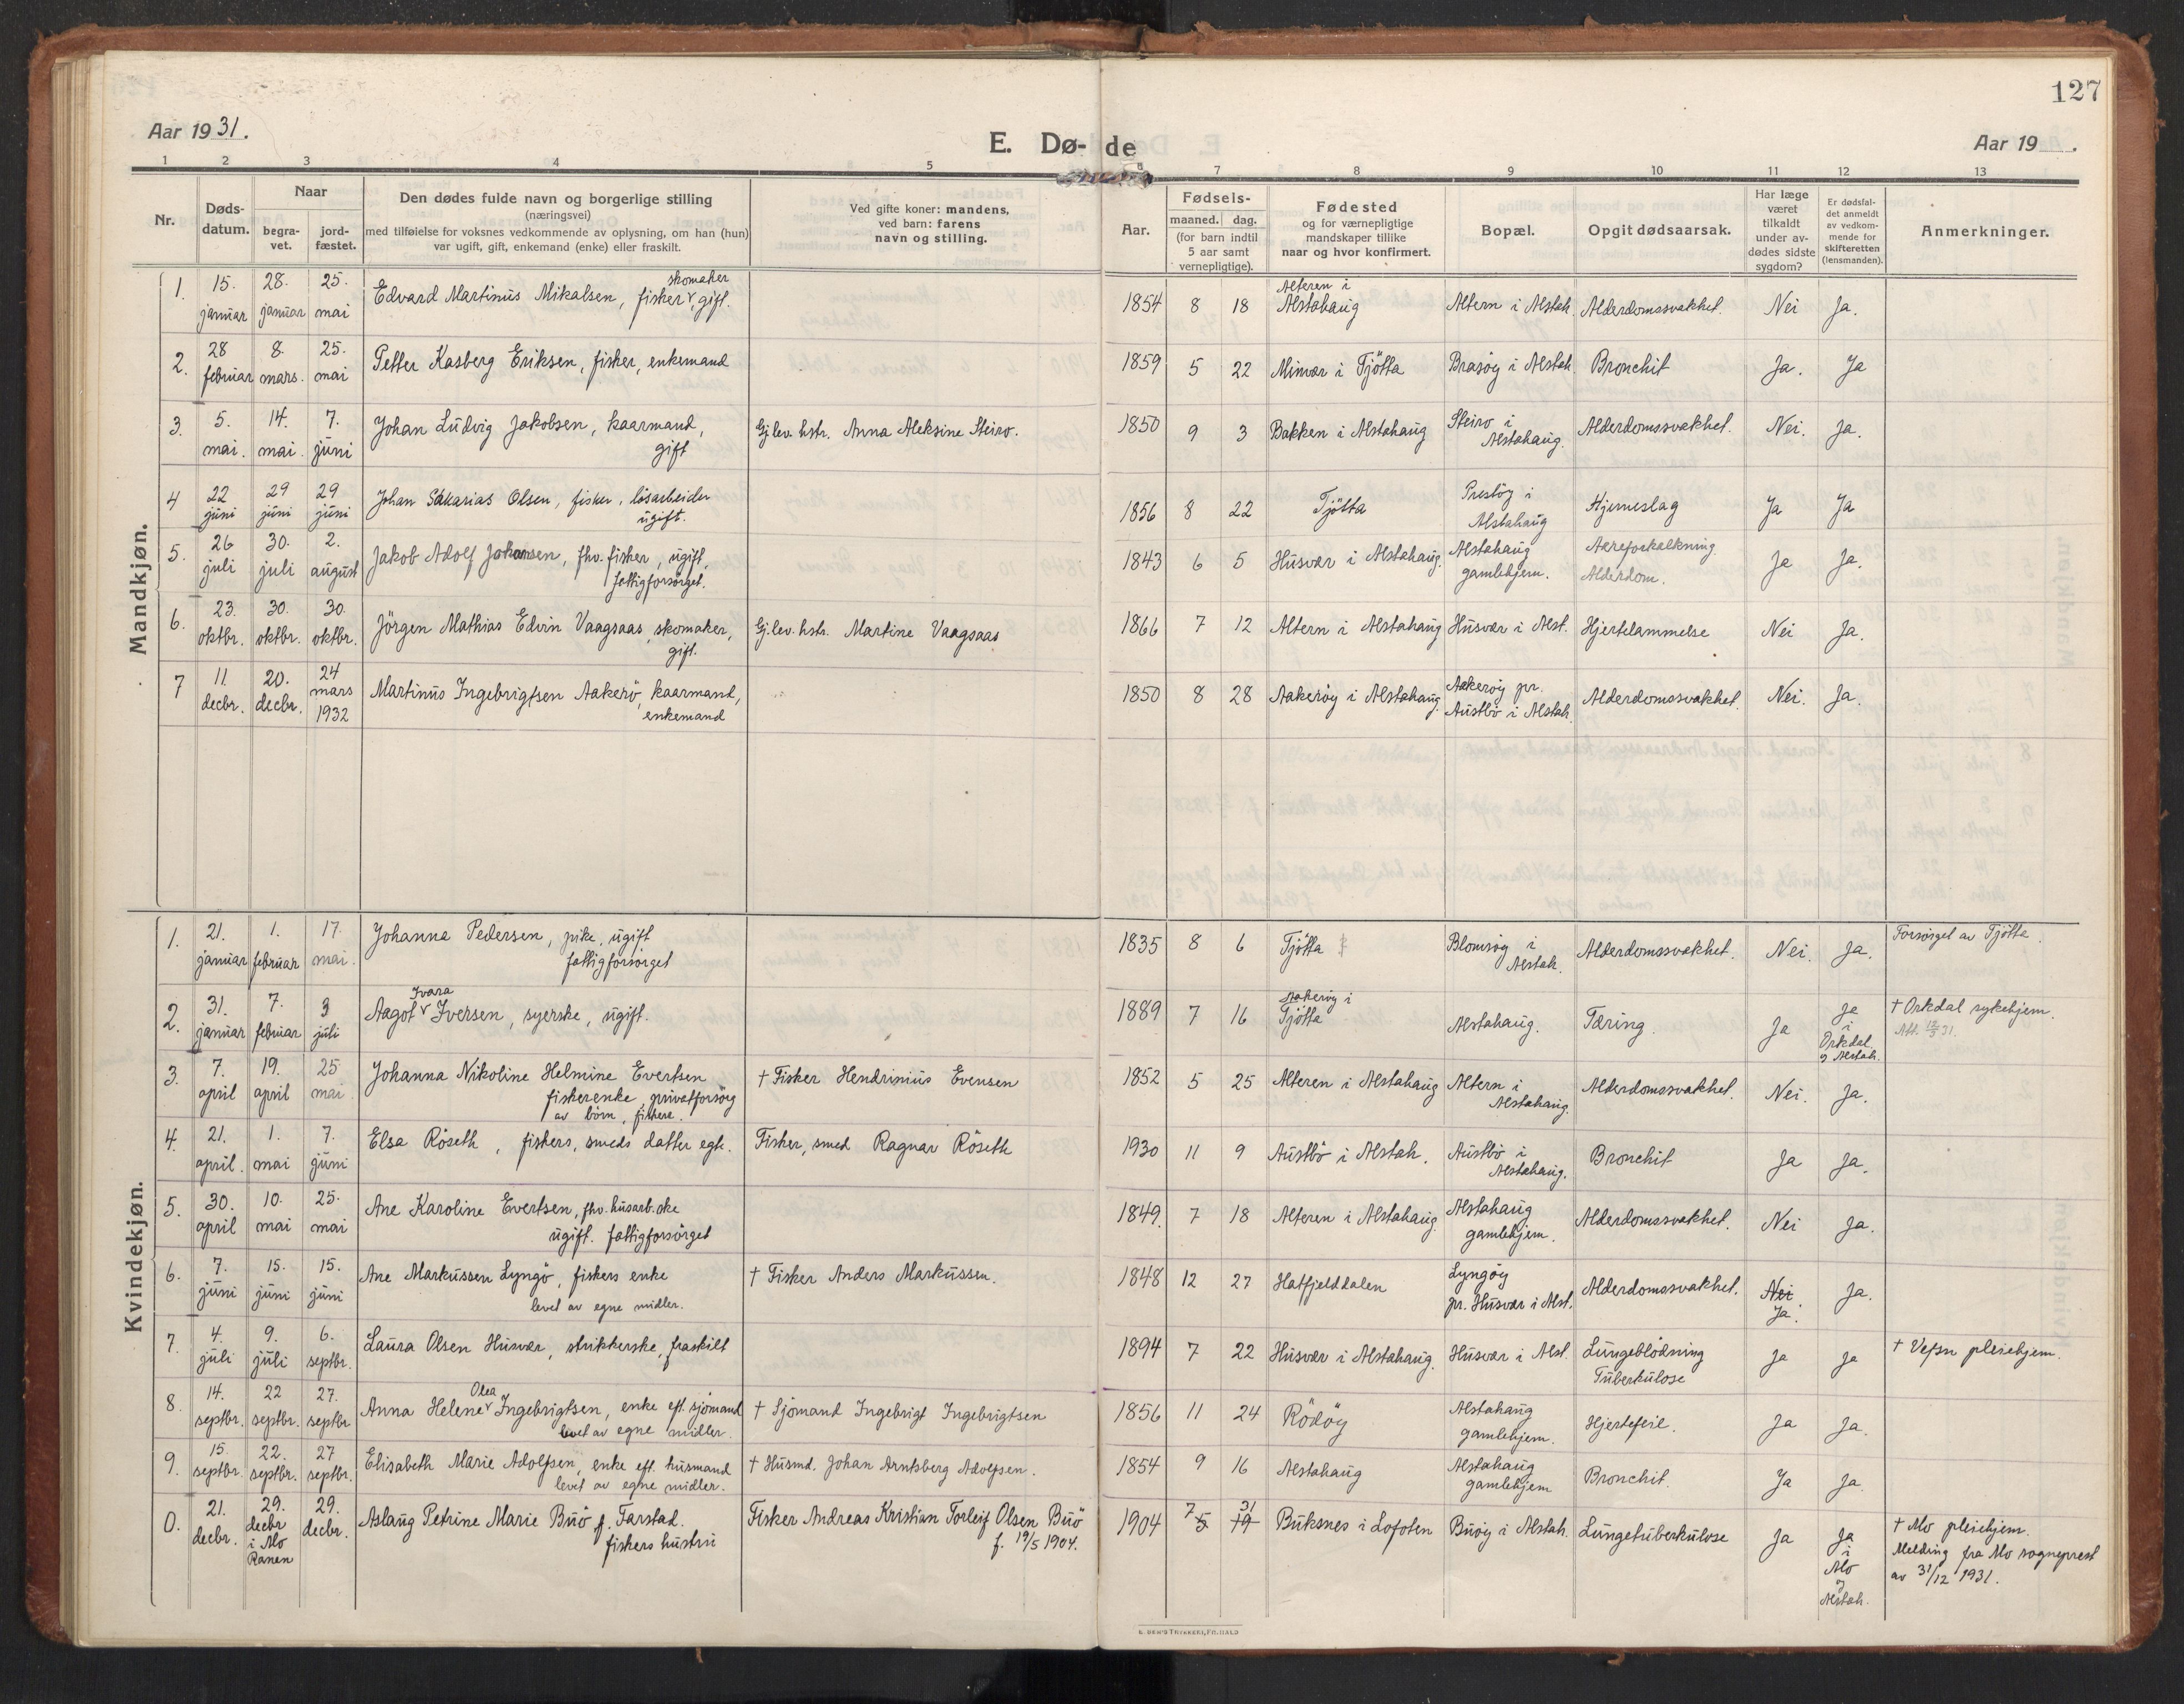 127
Aar 1931.
E. Dø- de
Aar 19 .
1 2 3 4 5 7 8 9 10 11 12 13
Nr.
Døds-
datum.
Naar
begra-
vet.
jord-
fæstet.
Den dødes fulde navn og borgerlige stilling
(næringsvei)
med tilføielse for voksnes vedkommende av oplysning, om han (hun)
var ugift, gift, enkemand (enke) eller fraskilt.
Ved gifte koner: mandens,
ved barn: farens
navn og stilling.
Aar.
Fødsels-
maaned. dag.
(for barn indtil
5 aar samt
vernepligtige).
Fødested
og for værnepligtige
mandskaper tillike
naar og hvor konfirmert.
Bopæl.
Opgit dødsaarsak.
Har læge
været
tilkaldt
under av-
dødes sidste
sygdom?
Er dødsfal-
det anmeldt
av vedkom-
mende for
skifteretten
(lensmanden).
Anmerkninger.
Mandkjøn.
1. 15. januar 28. januar 25. mai Edvard Martinus Mikalsen, fisker skomaker, gift. 1854 8 18 Alteren i Alstahaug Altern i Alstah. Alderdomssvakhet. Nei Ja.
2. 28 februar 8. mars. 25. mai Petter Kasberg Eriksen, fisker, enkemand 1859 5 22 Minvær i Tjötta Brasöy i Alstah. Bronchit Ja. Ja
3. 5. mai. 14. mai. 7. juni Johan Ludvig Jakobsen, kaarmand, gift Gj.lev. hstr. Anna Aleksine Steiro. 1850 9 3 Bakken i Alstahaug Steiro i Alstahaug. Alderdomssvakhet. Nei. Ja.
4 22 juni 29 juni 29 juni Johan Sakarias Olsen, fisker, lösarbeider ugift. 1856 8 22 Tjötta Prestöy i Alstahaug Hjerneslag Ja Ja
5. 26 juli 30. juli 2. august Jakob Adolf Johansen, fhv. fisker, ugift, fattigforsörget. 1843 6 5 Husvær i Alstahaug. Alstahaug gamlehjem. Aareforkalkning Alderdom. Ja Ja.
6. 23. oktbr. 30. oktbr. 30. oktbr. Jörgen Mathias Edvin Vaagsaas, skomaker, gift. Gj.lev. hstr. Martine Vaagsaas 1866 7 12 Altern i Alstahaug Husvær i Alst. Hjertelammelse Nei Ja.
7 11. decbr. 20. decbr. 24 mars 1932 Martinus Ingebrigtsen Aakerö, kaarmand, enkemand 1850 8 28 Aakeröy i Alstahaug. Aakeröy pr. Austbö i Alstah. Alderdomssvakhet. Nei. Ja.
Kvindekjøn.
1. 21. januar 1. februar 17. mai. Johanna Pedersen, pike, ugift fattigforsörget 1835 8 6 Tjötta Blomsöy i Alstah. Alderdomssvakhet. Nei. Ja. Forsörget av Tjötta.
2. 31. januar 7. februar 3 juli Aagot Ivara Iversen, syerske, ugift. 1889 7 16 Aakeröy i Tjötta Alstahaug. Tæring. Ja Ja i Orkdal og Alstah. † Orkdal sykehjem. Att. 12/3 31.
3. 7. april 19. april 25 mai Johanna Nikoline Helmine Evertsen fiskerenke, privatforsörg av börn, fiskere. † Fisker Hendrinius Evensen 1852 5 25 Alteren i Alstahaug Altern i Alstahaug. Alderdomssvakhet. Nei. Ja.
4. 21. april. 1. mai 7. juni Elsa Röseth, fiskers, smeds datter egte. Fisker, smed Ragnar Röseth 1930 11 9 Austbö i Alstah. Austbö i Alstahaug. Bronchit Ja Ja.
5. 30. april 10. mai 25. mai Ane Karoline Evertsen, fhv. husarb.ske ugift. fattigforsörget 1849. 7 18 Alteren i Alstahaug. Alstahaug gamlehjem. Alderdomssvakhet. Nei Ja.
6. 7. juni 15. juni 15. juni Ane Markussen Lyngö, fiskers enke levet av egne midler. † Fisker Anders Markussen. 1848 12 27 Hatfjelddalen Lyngöy pr. Husvær i Alst. Alderdomssvakhet. Nei Ja. Ja.
7. 4. juli 9. juli 6. septbr. Laura Olsen Husvær, strikkerske, fraskilt 1894 7 22 Husvær i Alstahaug. Husvær i Alst. Lungeblödning Tuberkulose Ja Ja † Vefsn pleiehjem.
8. 14. septbr. 22 septbr. 27. septbr Anna Helene Olea Ingebrigtsen, enke eft. sjömand levet av egne midler. † Sjömand Ingebrigt Ingebrigtsen 1856 11 24 Rödöy Alstahaug gamlehjem. Hjertefeil. Ja Ja.
9. 15. septbr. 22. septbr. 27 septbr. Elisabeth Marie Adolfsen, enke eft. husmand levet av egne midler. † Husmd. Johan Arntsberg Adolfsen. 1854 9 16 Alstahaug Alstahaug gamlehjem Bronchit. Ja Ja.
0. 21. decbr. 29. decbr i Mo Ranen 29. decbr. Aslaug Petrine Marie Buö f. Farstad. fiskers hustru Fisker Andreas Kristian Torleif Olsen Buö f. 19/5 1904. 1904 7 5 31 19 Buksnes i Lofoten Buöy i Alstah. Lungetuberkulose Ja Ja i Mo og Alstah. † Mo pleiehjem. Melding fra Mo sogneprest av 31/12 1931.